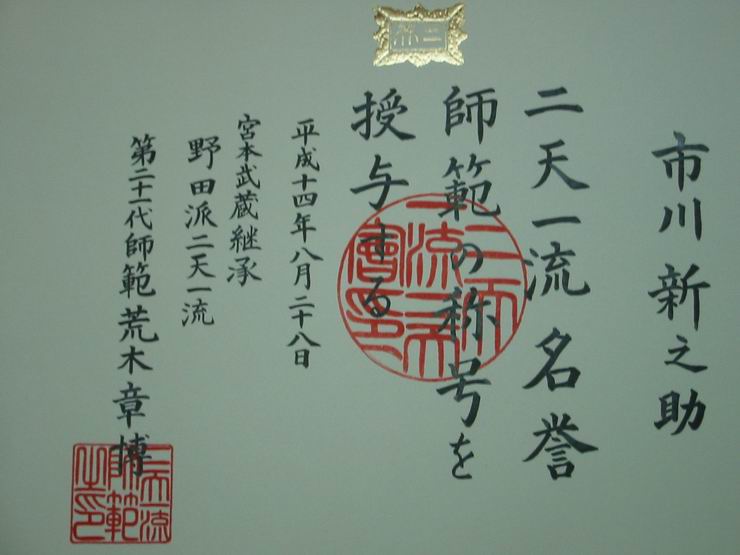 市川新之助
二天一流名誉
師範の称号を
授与する
平成十四年八月二十八日
宮本武蔵継承
野田派二天一流
第二十一代師範荒木章博